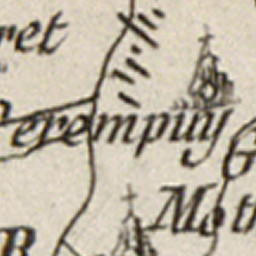 ret
Perempuy
G
Mot
R